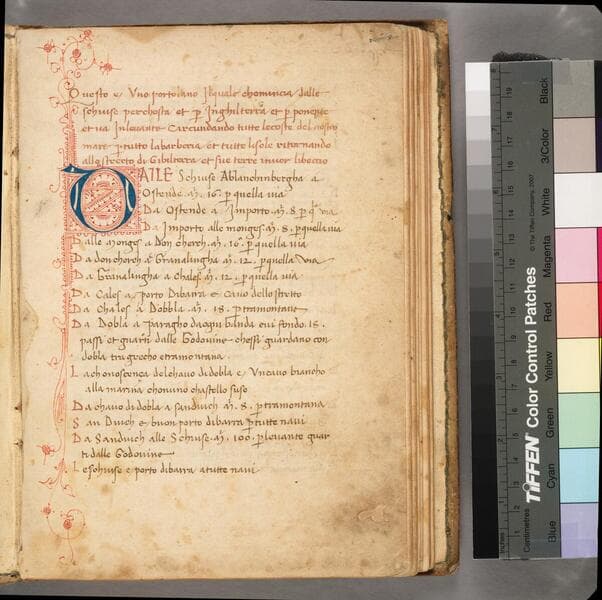 Questo e Vno portolano Ilquale chomincia dalle
schiuse perchosta et p Inghilterra et p ponente
et ua Inleuante Circundando tutte lecoste del nostro
mare p tutto labarberia et tutte lisole ritornando
allostretto di Gibilterra et sue terre inuer libeccio
DALLE Schiuse Ablanchinbergha a
Ostende .m. 16. p quella uia
Da Ostende a Importo .m. 8. p q uia
Da Importo alle monges .m. 8. p quella uia
Dalle monges a Don cherch .m. 16. p quella uia
Da doncherch a Granalingha .m. 12. p quella Via
Da Granalingha a Chales .m. 12. p quella uia
Da Cales a porto Dibarra e Cauo dello stretto
Da Chales a Dobbla .m. 18. p tramontana
Da Dobla a paragho dacqui banda eui fondo .18.
passi et guarti dalle Godouine chessi guardano con
dobla tra grecho e tramontana
La chonoscenza delchauo di dobla e Vncauo biancho
alla marina chon uno chastello suso
Da chauo di dobla a sanduich .m. 8. p tramontana
San Duich e buon porto dibarra p tutte naui
Da Sanduich alle Schiuse .m. 100. p leuante guar
ti dalle Godouine
Leschiuse e porto dibarra a tutte naui
TIFFEN Color Control Patches
© The Tiffen Company, 2007
Inches
Centimetres
1 2 3 4 5 6 7 8 9 10 11 12 13 14 15 16 17 18 19
Blue
Cyan
Green
Yellow
Red
Magenta
White
3/Color
Black